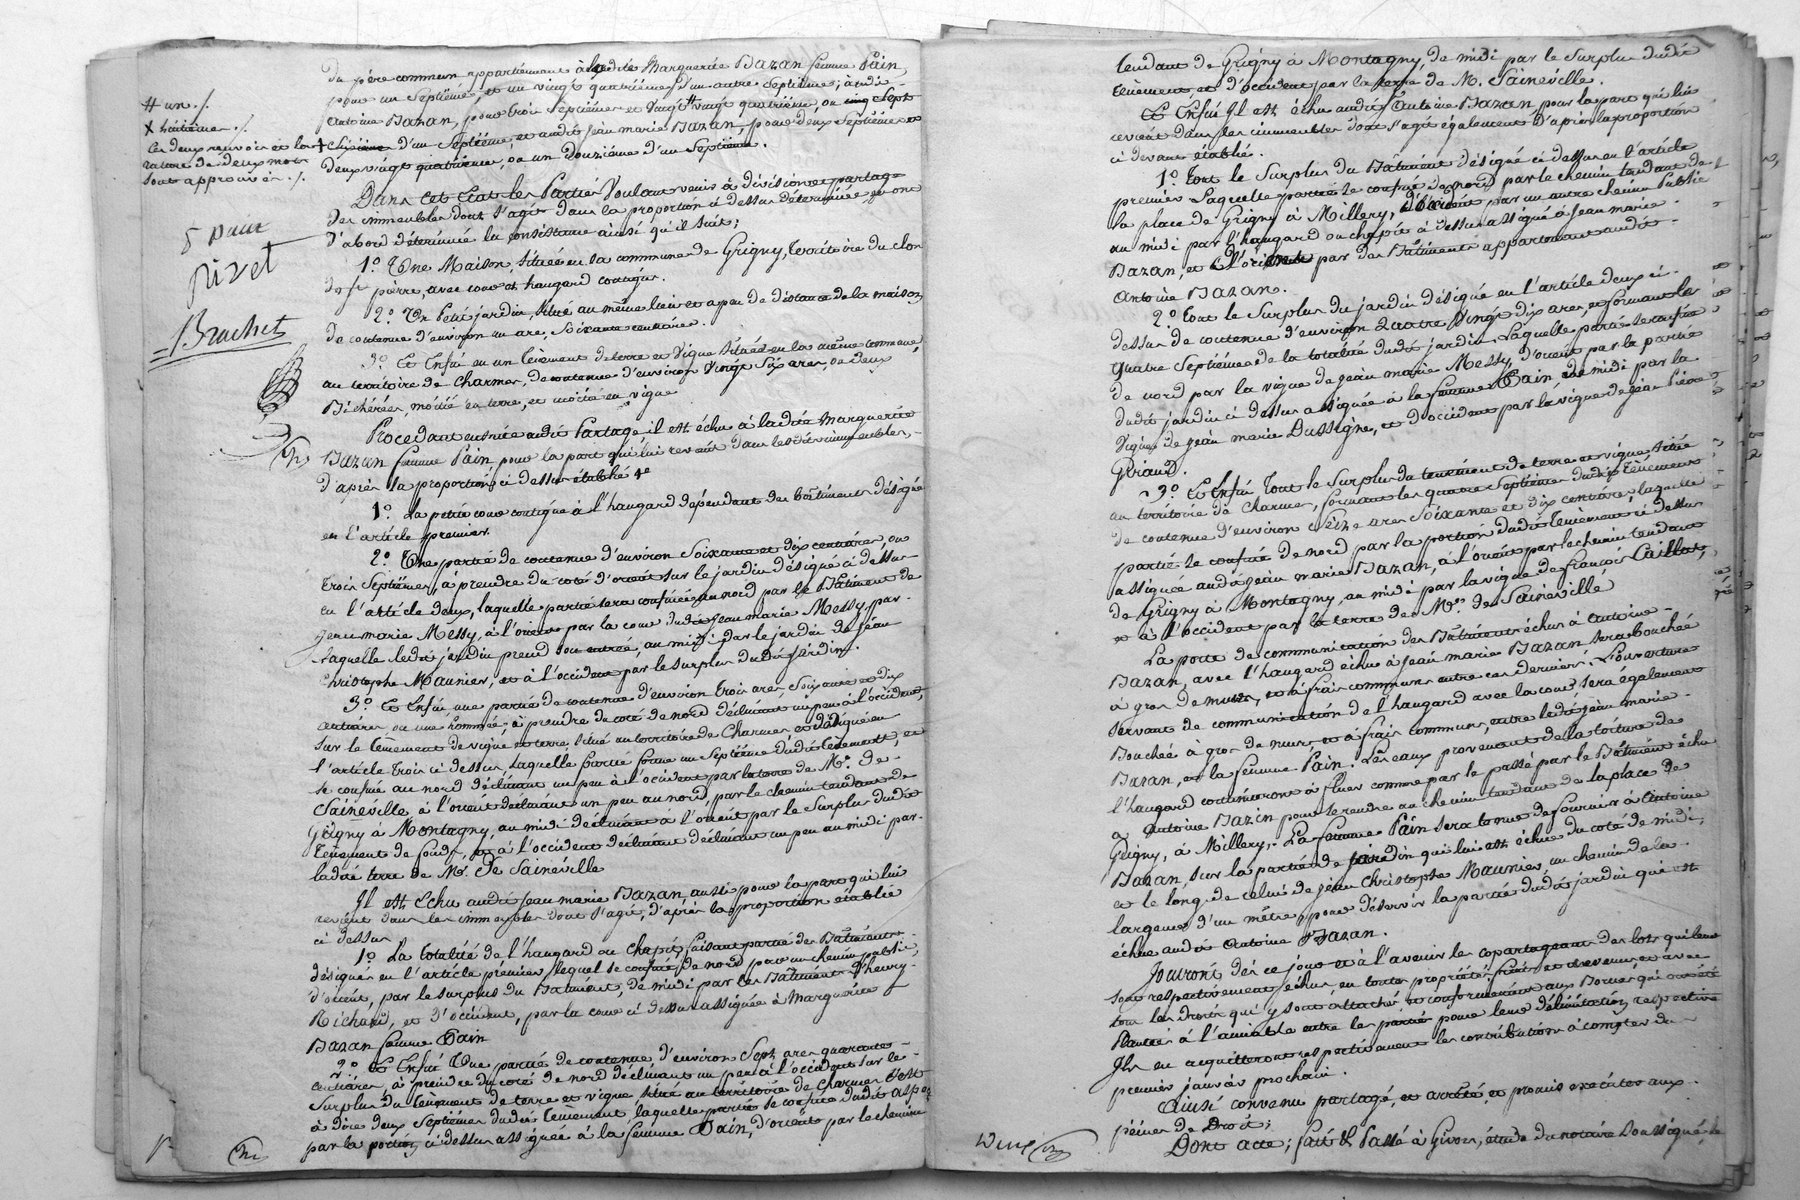 # un ./.
x huitième ./.
les deux renvois et la
rature de deux mots
sont approuvés ./.
5 pain
Rivet
Brachet
du père commun appartiennent à ladite Marguerite Bazan femme Pain,
pour un Septième, et un vingt quatrième d'un autre Septième; audit
antoine Bazan, pour trois Septièmes et vingt quatrième, ou cinq Sept
Sixième d'un Septième, et audit Jean marie Bazan, pour deux Septièmes et
deux vingt quatrième, ou un douzième d'un Septième.
Dans cet Etat les Parties Voulant venir à division et partage
des immeubles dont s'agit dans la proportion ci dessus déterminée, en ont
d'abord déterminé la consistance ainsi qu'il suit;
1.° Une Maison, située en la commune de Grigny, territoire du clos
pierre, avec cour et hangard contigus.
2.° Un Petit jardin, situé au même lieu et a peu de distance de la maison
de contenue d'environ un are, Soixante centiares.
3.° Et Enfin en un tènement de terre et Vigne situées en la même commune,
au territoire de charmes, de contenue d'environ Vingt Six ares, ou deux
Bicherées, moitié en terre, et moitié en vigne
Procédant ensuite audit Partage, il est échu à ladite Marguerite
Bazan femme Pain, pour la part qui lui revient dans lesdits immeubles,
d'après la proportion ci dessus établie
1.° La petite cour contigue à l'hangard dépendant des bâtiments désignés
en l'article premier.
2.° Une partie de contenue d'environ Soixante et dix centiares, ou
trois Septièmes, à prendre du coté d'orient sur le jardin désigné ci dessus
en l'article deux, laquelle partie sera confinée au nord par le Bâtiment de
Jean marie Messy, à l'orient par la cour dudit Jean marie Messy, par
laquelle ledit jardin prend son entrée, au midi par le jardin de jean
christophe Maunier, et à l'occident par le surplus dudit jardin.
3.° Et Enfin une partie de contenue d'environ trois ares, Soixante et dix
centiares, ou une hommée, à prendre du coté de nord déclinant un peu à l'occident,
sur le tènement de vigne et terre, situé au territoire de Charmes, et désigné en
l'article trois ci dessus laquelle partie forme un Septième dudit tènement, et
se confine au nord déclinant un peu à l'occident par la terre de Mr. de
Saineville à l'orient déclinant un peu au nord, par le chemin tendant de
Grigny à Montagny, au midi déclinant à l'orient par le surplus dudit
tènement de fonds, et à l'occident déclinant un peu au midi par
ladite terre de Mr. De Saineville
Il est Echu audit Jean marie Bazan, aussi pour la part qui lui
revient dans les immeubles dont s'agit, d'après la proportion établie
ci dessus
1.° La totalité de l'hangard ou chapit, faisant partie des Bâtiments
désignés en l'article premier, lequel se confine, de nord par un chemin public,
d'orient, par le surplus du Bâtiment, de midi par les Bâtiments d'henry
Richard, et d'occident, par la cour ci dessus assignée à Marguerite
Bazan femme Pain
2.° Et Enfin Une partie de contenue d'environ Sept ares quarante
centiares, à prendre du coté de nord déclinant un peu à l'occident sur le
Surplus du tènement de terre et vigne, situé au territoire de Charmes c'est
à dire deux Septièmes dudit tènement, laquelle partie se confine dudit aspect
par la portion ci dessus assignée à la femme Pain, d'orient par le chemin
tendant de Grigny à Montagny, de midi par le Surplus dudit
tènement, et d'occident par la terre de M. Saineville.
Et Enfin Il est échu audit Antoine Bazan pour la part qui lui
revient dans les immeubles dont s'agit également d'après la proportion
ci devant établie.
1.° Tout le Surplus du Bâtiment désigné ci dessus en l'article
premier Laquelle partie se confine de nord par le chemin tendant de
la place de Grigny à Millery, d'orient par un autre chemin Public
au midi par l'hangard ou chapit à dessus assigné à Jean marie
Bazan, et d'occident par des Bâtiments appartenant audit
Antoine Bazan.
2.° Tout le Surplus du jardin désigné en l'article deux ci
dessus de contenue d'environ Quatre Vingt dix ares, et formant les
quatre Septièmes de la totalité dudit jardin. Laquelle partie sera confinée
de nord par la vigne de jean marie Messy, d'orient par la partie
dudit jardin ci dessus assignée à la femme Pain de midi par la
Vigne de jean marie Dussigne, et d'occident par la vigne de jean Pierre
Giraud.
3.° Et Enfin, tout le Surplus du tènement de terre et vigne situé
au territoire de Charmes, formant les quatre Septièmes dudit tènement
de contenue d'environ Seize ares Soixante et dix centiares laquelle
partie se confine de nord par la portion dudit tènement ci dessus
assignée audit jean marie Bazan, à l'orient par le chemin tendant
de Grigny à Montagny, au midi par la vigne de françois Caillat,
et à l'occident par la terre de Mr. de Saineville
La porte de communication des Bâtiments échus à Antoine
Bazan, avec l'hangard échu à jean marie Bazan sera bouchée
à gros de murs, et à frais communs entre ces derniers. L'ouverture
servant de communication de l'hangard avec la cour sera également
Bouchée à gros de murs, et à frais communs, entre ledit jean marie
Bazan, et la femme Pain. Les eaux provenant de la toiture de
l'hangard continueront à fluer comme par le passé par le Bâtiment échu
a Antoine Bazan pour se rendre au chemin tendant de la place de
Grigny, à Millery. La femme Pain sera tenue de fournir à Antoine
Bazan, sur la partie de jardin qui lui est échue du coté de midi,
et le long de celui de jean christophe Maunier, un chemin de la
largeur d'un mètre, pour désservir la partie dudit jardin qui est
échue audit Antoine Bazan.
Jouiront dès ce jour et à l'avenir les copartageans des lots qui leur
sont respectivement échus, en toutes propriétés fruits et revenus et avec
tous les droits qui y sont attachés et conformément aux Bornes qui ont été
Plantées à l'amiable entre les parties pour leur délimitation respective
Ils en acquitteront respectivement les contributions à compter du
premier janvier prochain.
Ainsi convenu partagé, et arrêté, et promis exécuter aux
peines de Droit;
Dont acte; fait & Passé à Givors, étude du notaire Soussigné, le
Deux